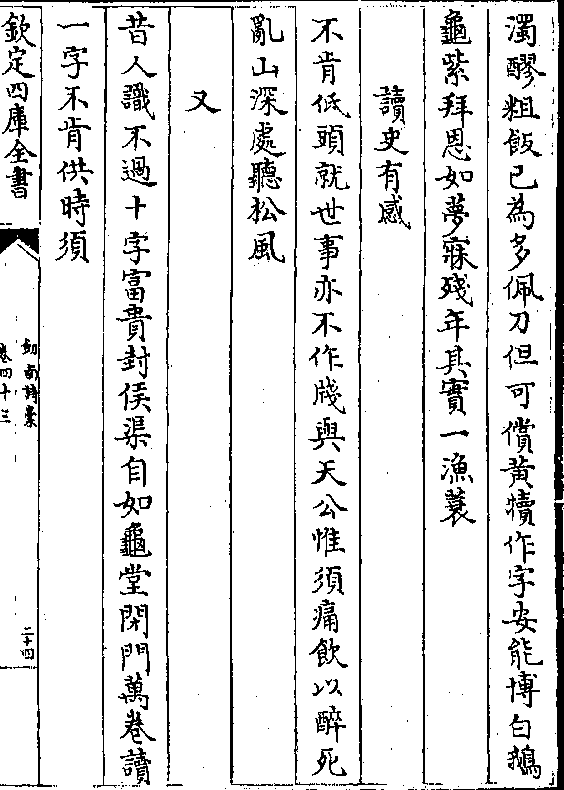 濁醪粗飯已為多佩刀但可償黃犢作字安能博白鵝
龜紫拜恩如夢寐殘年其實一漁蓑
讀史有感
不肯低頭就世事亦不作牋與天公惟須痛飲以醉死
亂山深處聽松風
又
昔人識不過十字富貴封侯渠自如龜堂閉門萬卷讀
一字不肯供時須
欽定四庫全書
劍南詩稾
卷四十三
二十四